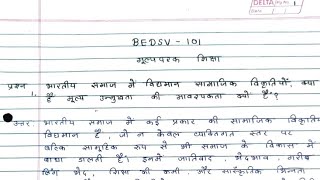 DELTA
BEDSV - 101
मूल्यपरक शिक्षा
प्रश्न 1. भारतीय समाज में विद्यमान सामाजिक विकृतियों, क्या
हैं मूल्य उन्मुखता की आवश्यकता क्यों है?
उत्तर: भारतीय समाज में कई प्रकार की सामाजिक विकृतियाँ
विद्यमान हैं, जो न केवल व्यक्तिगत स्तर पर
बल्कि सामूहिक रूप से भी समाज के विकास में
बाधा डालती हैं। इनमें जातिवाद, भेदभाव, गरीबी
लिंग भेद, शिक्षा की कमी, और सांस्कृतिक भिन्नता